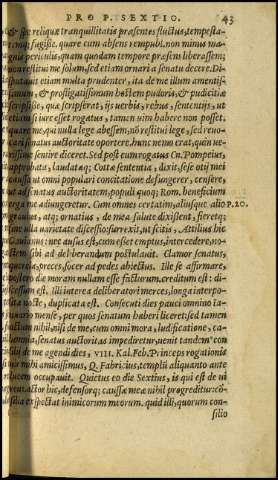 PRO P. SEXTIO. 43
reliquæ tranquilitatis præsentes fluctus, tempesta-
fugisse, quare cum absens rempubl. non minus ma-
periculo, quam quodam tempore præsens liberassem;
restitui me solum, sed etiam ornari a senatu decere. Di-
etiam multa prudenter, ita de me illum amentiss.
& profligatissimum hostem pudoris, & pudicitiæ
scripsisse, quæ scripserat, iis verbis, rebus, sententiis, ut
si iure esset rogatus, tamen vim habere non posset,
quare me, qui nulla lege abessem, non restitui lege, sed revo-
senatus auctoritate oportere. hunc nemo erat, quin ve-
sentire diceret. Sed post eum rogatus Cn. Pompeius,
approbata, laudataq; Cottæ sententia, dixit, sese otij mei
ut omni populari concitatione defungerer, censere,
ut ad senatus auctoritatem, populi quoq; Rom. beneficium
erga me adiungeretur. Cum omnes certatim, aliusque alio P. 20.
grauius, atq; ornatius, de mea salute dixisset, fieretq;
sine ulla varietate discessio: surrexit, ut scitis, Attilius hic
Gauianus: nec ausus est, cum esset emptus, intercedere, no-
ctem sibi ad deliberandum postulauit. Clamor senatus,
querelæ, preces, socer ad pedes abiectus. Ille se affirmare,
postero die moram nullam esse facturum. creditum est: di-
scessum est. Illi interea deliberatori merces, longa interpo-
sita nocte, duplicata est. Consecuti dies pauci omnino Ia-
nuario mense, per quos senatum haberi liceret, sed tamen
actum nihil, nisi de me, cum omni mora, ludificatione, ca-
lumnia, senatus auctoritas impediretur, uenit tandem con-
cilij de me agendi dies, VIII. Kal. Feb. Princeps rogationis
mihi amicissimus, Q. Fabricius, templum aliquanto ante
lucem occupauit. Quietus eo die Sextius, is qui est de ui
reus. actor hic, defensorq; caussæ meæ nihil progreditur: co-
silia expectat inimicorum meorum. quid illi, quorum con-
silio